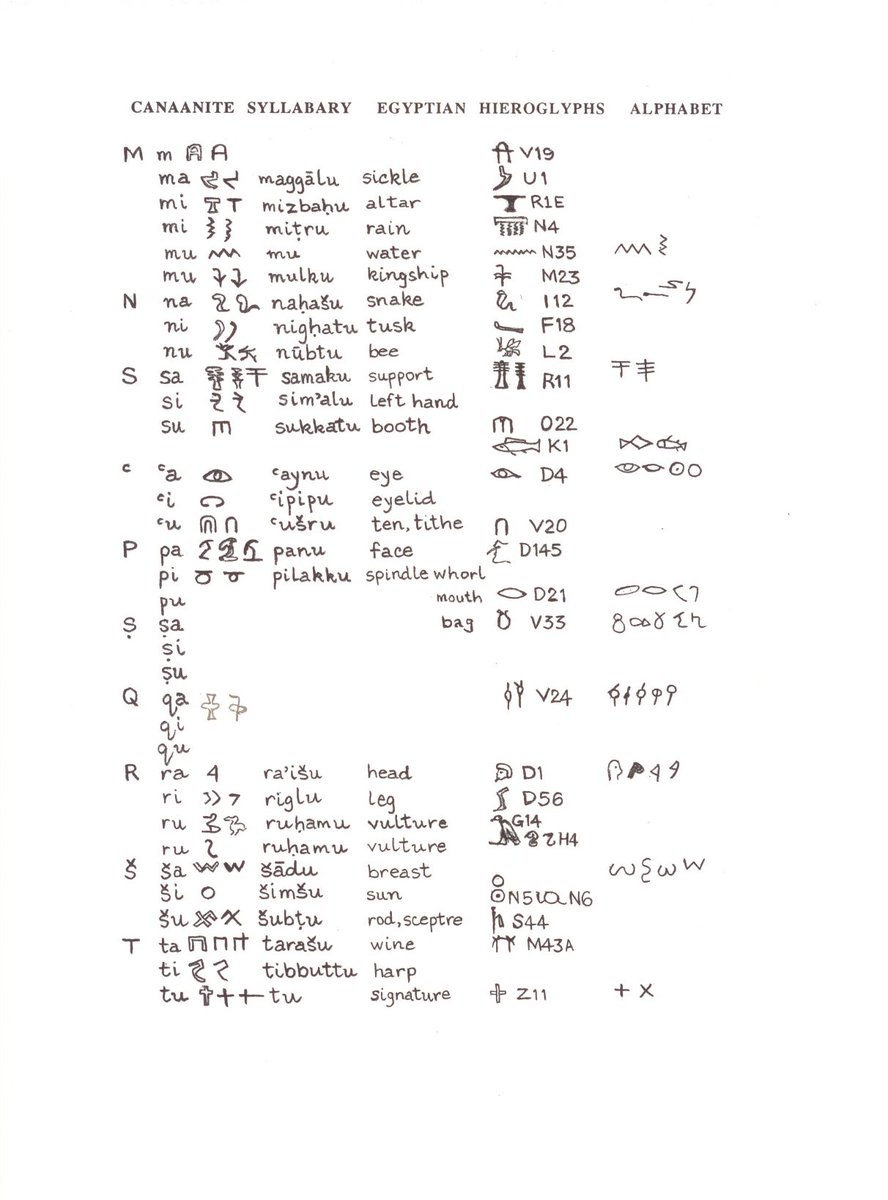 CANAANITE SYLLABARY EGYPTIAN HIEROGLYPHS ALPHABET
M m V19
ma maggālu sickle U1
mi mizbaḥu altar R1E
mi miṭru rain N4
mu mu water N35
mu mulku kingship M23
N na naḥašu snake I12
ni nighatu tusk F18
nu nūbtu bee L2
S sa samaku support R11
si sim'alu left hand
su sukkatu booth O22
K1
ʿ ʿa ʿaynu eye D4
ʿi ʿipipu eyelid
ʿu ʿušru ten, tithe V20
P pa panu face D145
pi pilakku spindle whorl
pu mouth D21
Ṣ ṣa bag V33
ṣi
ṣu
Q qa V24
qi
qu
R ra ra'išu head D1
ri riglu leg D56
ru ruḥamu vulture G14
H4
ru ruḥamu vulture
Š ša šādu breast
ši šimšu sun N5 N6
šu šubṭu rod, sceptre S44
T ta tarašu wine M43A
ti tibbuttu harp
tu tu signature Z11